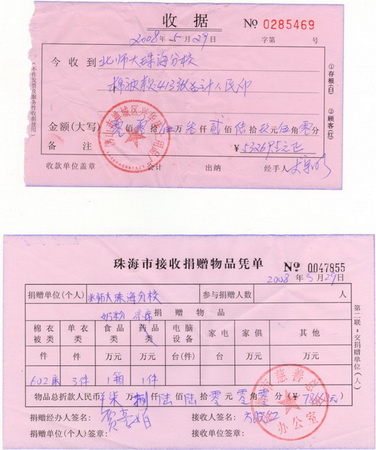 收据 № 0285469
2008年5月29日 字第 号
今收到 北师大珠海分校
棉被款413张总计人民币
金额(大写) 零佰零拾伍万叁仟贰佰陆拾玖元伍角零分
备注 ¥53269.5元正
收款单位盖章 会计 出纳 经手人
①存根(白)
②顾客(红)
珠海市接收捐赠物品凭单 № 0047855
2008年5月29日
捐赠单位(个人) 北师大珠海分校 参与捐赠人数 人
捐赠物品
棉衣被类 单衣类 食品类 药品类 电脑设备 家电 家俱 其他
件 件 万元 万元 台(件) 台 件 万元
602床 3件 1箱 1件
物品总折款人民币 柒 捌 陆 陆拾零元零角零分
捐赠经办人签名: 接收人签名:
捐赠单位(个人)签章: 接收单位签章:
第二联:交捐赠单位(个人)
慈善总
办公室